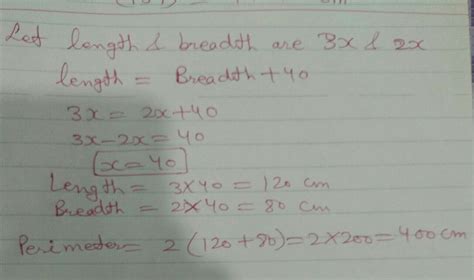 cm
Let length & breadth are 3x & 2x
length = Breadth + 40
3x = 2x + 40
3x - 2x = 40
x = 40
Length = 3 × 40 = 120 cm
Breadth = 2 × 40 = 80 cm
Perimeter = 2 (120 + 80) = 2 × 200 = 400 cm